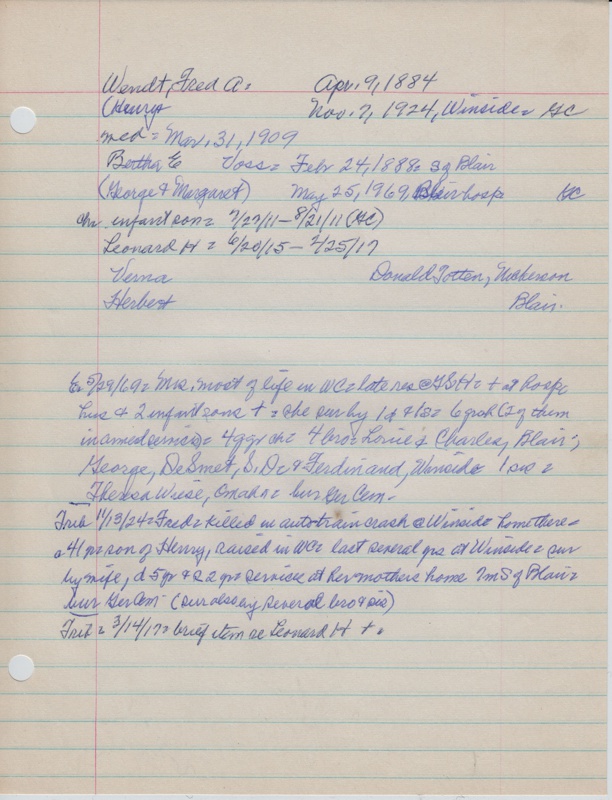 Wendt, Fred A. = Apr. 9, 1884
(Henry) Nov. 7, 1924, Winside = GC
med = Mar. 31, 1909
Bertha E Voss = Febr 24, 1888 = S of Blair
(George & Margaret) May 25, 1969, Blair hosp GC
chr infant son = 7/27/11 - 8/21/11 (GC)
Leonard H = 6/20/15 - 4/25/17
Verna Donald Totten, Nickerson
Herbert Blair.
E 5/29/69 = Mrs. most of life in WC = late res @ GSH = + at hosp
hus & 2 infant sons + = she sur by 1d & 1s = 6 grch (2 of them
in armed services = 4 ggr ch = 4 bro = Louie & Charles, Blair;
George, DeSmet, S.D. & Ferdinand, Winside 1 sis =
Theresa Wiese, Omaha = bur Ger Cem.
Trib 11/13/24 = Fred = killed in auto-train crash @ Winside home there =
41 yr = son of Henry, raised in WC = last several yrs at Winside = sur
by wife, d 5 yr & s 2 yr = service at her mothers home 7m S of Blair =
bur Ger Cem (sur also by several bro & sis)
Trib = 3/14/17 = brief item re Leonard H +.